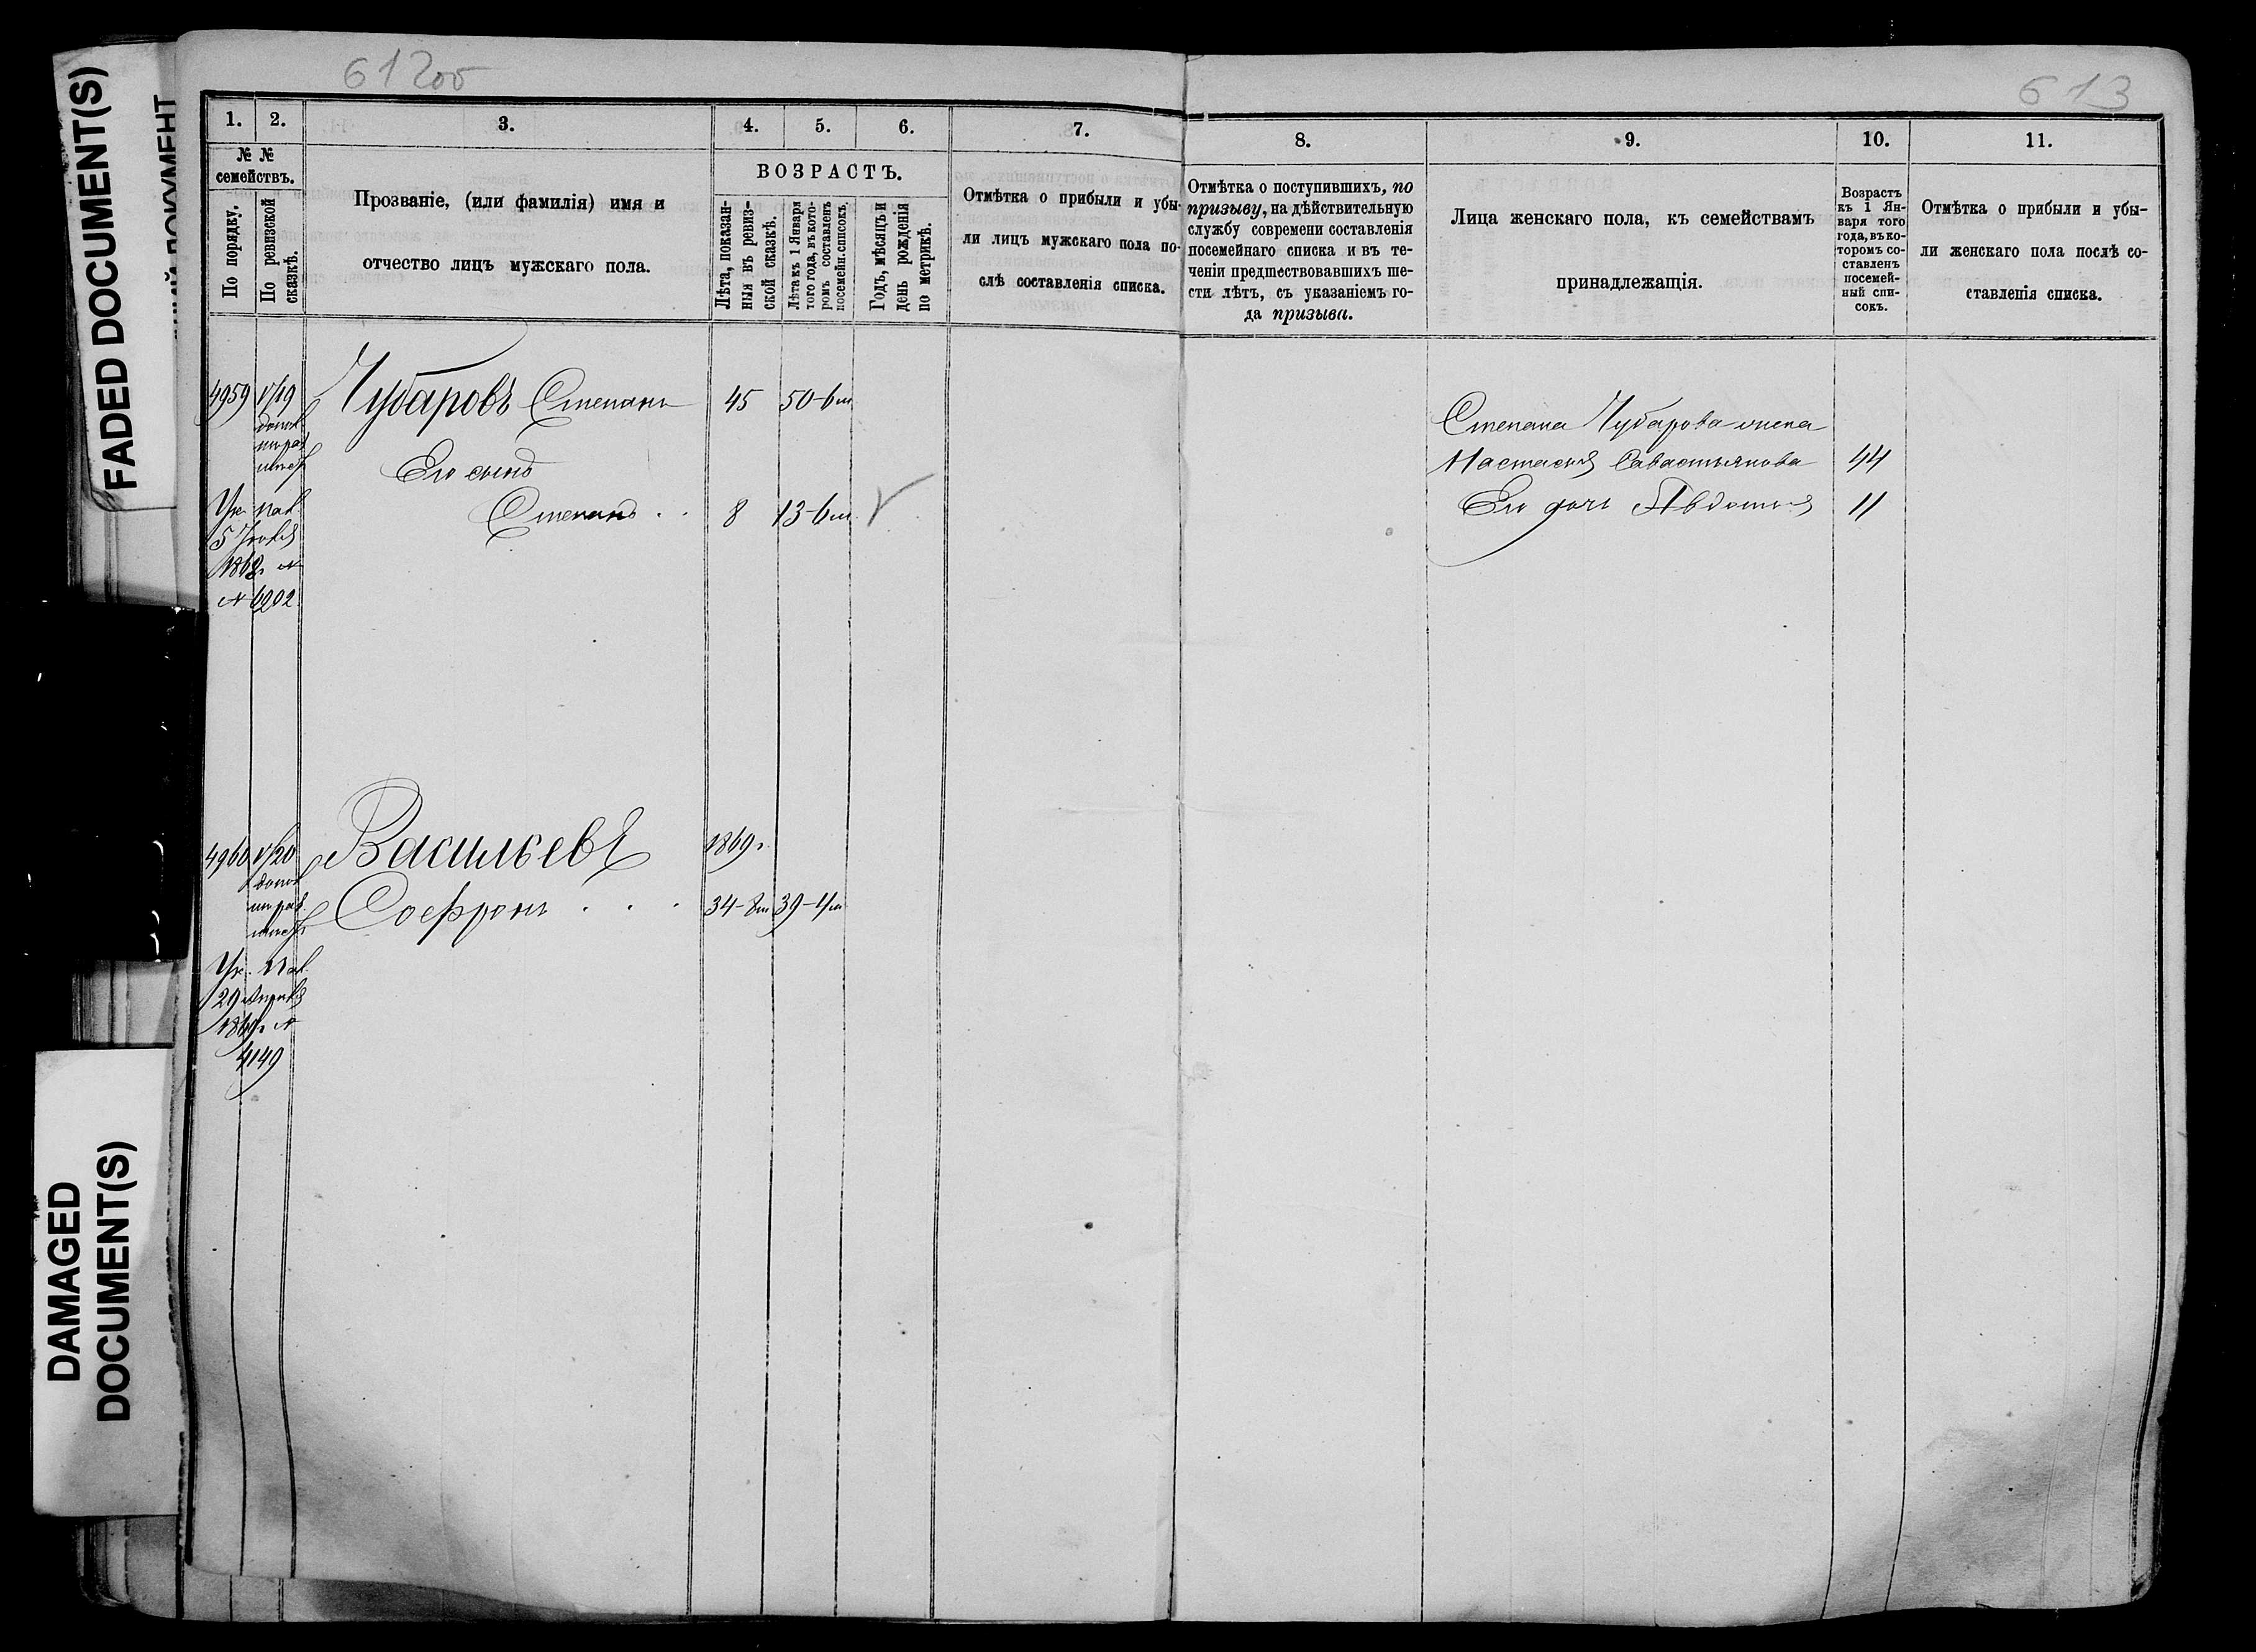 FADED DOCUMENT(S)
DAMAGED
DOCUMENT(S)
612об
613
1.
2.
3.
4.
5.
6.
7.
8.
9.
10.
11.
№ №
семействъ.
По порядку.
По ревизской
сказкѣ.
Прозваніе, (или фамилія) имя и
отчество лицъ мужскаго пола.
ВОЗРАСТЪ.
Лѣта, показан-
ныя въ ревиз-
ской сказкѣ.
Лѣта къ 1 Января
того года, въ кото-
ромъ составленъ
посемейн. списокъ.
Годъ, мѣсяцъ и
день рожденія
по метрикѣ.
Отмѣтка о прибыли и убы-
ли лицъ мужскаго пола по-
слѣ составленія списка.
Отмѣтка о поступившихъ, по
призыву, на дѣйствительную
службу современи составленія
посемейнаго списка и въ те-
ченіи предшествовавшихъ ше-
сти лѣтъ, съ указаніемъ го-
да призыва.
Лица женскаго пола, къ семействамъ
принадлежащія.
Возрастъ
къ 1 Ян-
варя того
года, въ ко-
торомъ со-
ставленъ
посемей-
ный спи-
сокъ.
Отмѣтка о прибыли и убы-
ли женскаго пола послѣ со-
ставленія списка.
4959 Чубаровъ Степанъ 45 50-6м
Его сынъ
Степанъ 8 13-6м
Ук. пал.
5 Іюня
1868г. №
№ 6202
Степана Чубарова жена
Настасья Савастьянова 44
Его дочь Авдотья 11
4960 Васильевъ 1869г.
Софронъ 34-8м 39-4м
Ук. Пал.
29 Апрѣля
1869г. №
4149